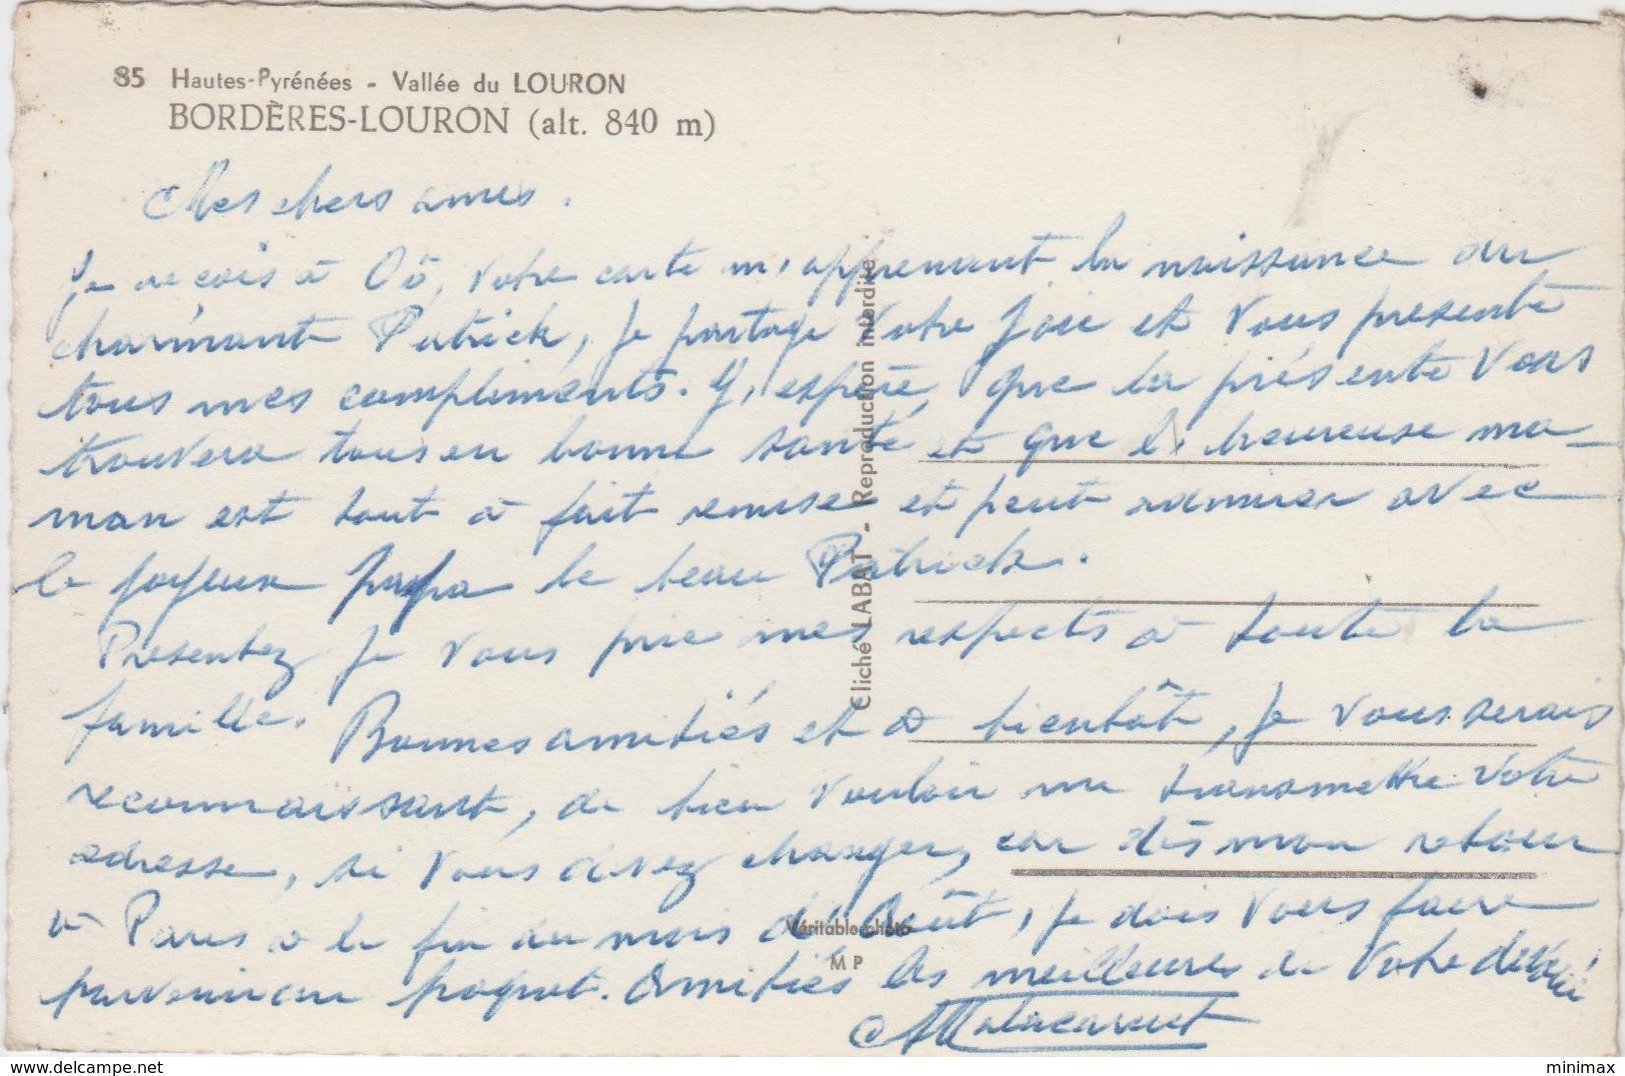 85 Hautes-Pyrénées - Vallée du LOURON
BORDÈRES-LOURON (alt. 840 m)
Mes chers amis.
Je recois à Oô, votre carte m'apprenant la naissance du
charmant Patrick, je partage votre joie et vous présente
tous mes compliments. J'espère, que la présente vous
trouvera tous en bonne santé et que l' heureuse ma-
man est tout à fait remise et peut admirer avec
le joyeux papa le beau Patrick.
Presentez je vous prie mes respects à toute la
famille. Bonnes amitiés et à bientôt, je vous serais
reconnaissant, de bien vouloir me transmettre votre
adresse, si vous devez changer, car dès mon retour
à Paris à la fin du mois d'Août, je dois vous faire
parvenir un paquet. Amitiés les meilleures de votre dévoué
Cliché LABAT - Reproduction interdite
Véritable photo
M P
delcampe.net
minimax